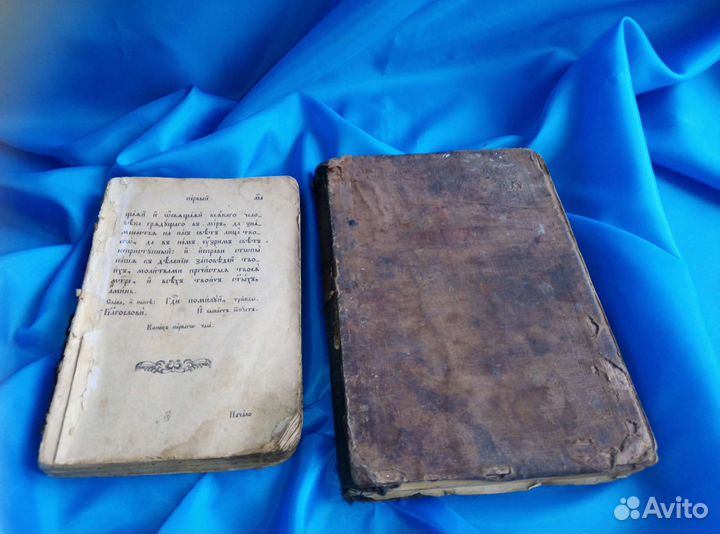 первый м҃а
щаѧй и҆ ѡ҆свѧщаѧй всѧкаго чело-
вѣка грѧдущаго въ мїръ, да зна-
менаетсѧ на насъ свѣтъ лица тво-
егѡ̀, да въ немъ ѹ҆зримъ свѣтъ
непристѹпный: и҆ и҆справи стѡпы
нашѧ къ дѣланїю заповѣдей тво-
и҆хъ, молитвами пречⷭ҇тыѧ твоеѧ̀
мт҃ре, и҆ всѣхъ твоихъ ст҃ыхъ,
а҆минь.
Слава, и҆ нынѣ: Гдⷭ҇и помилуй, трижды.
Бл҃гослови. И҆ бываетъ ѿпустъ.
Конецъ перваго часа.
Начало
Avito